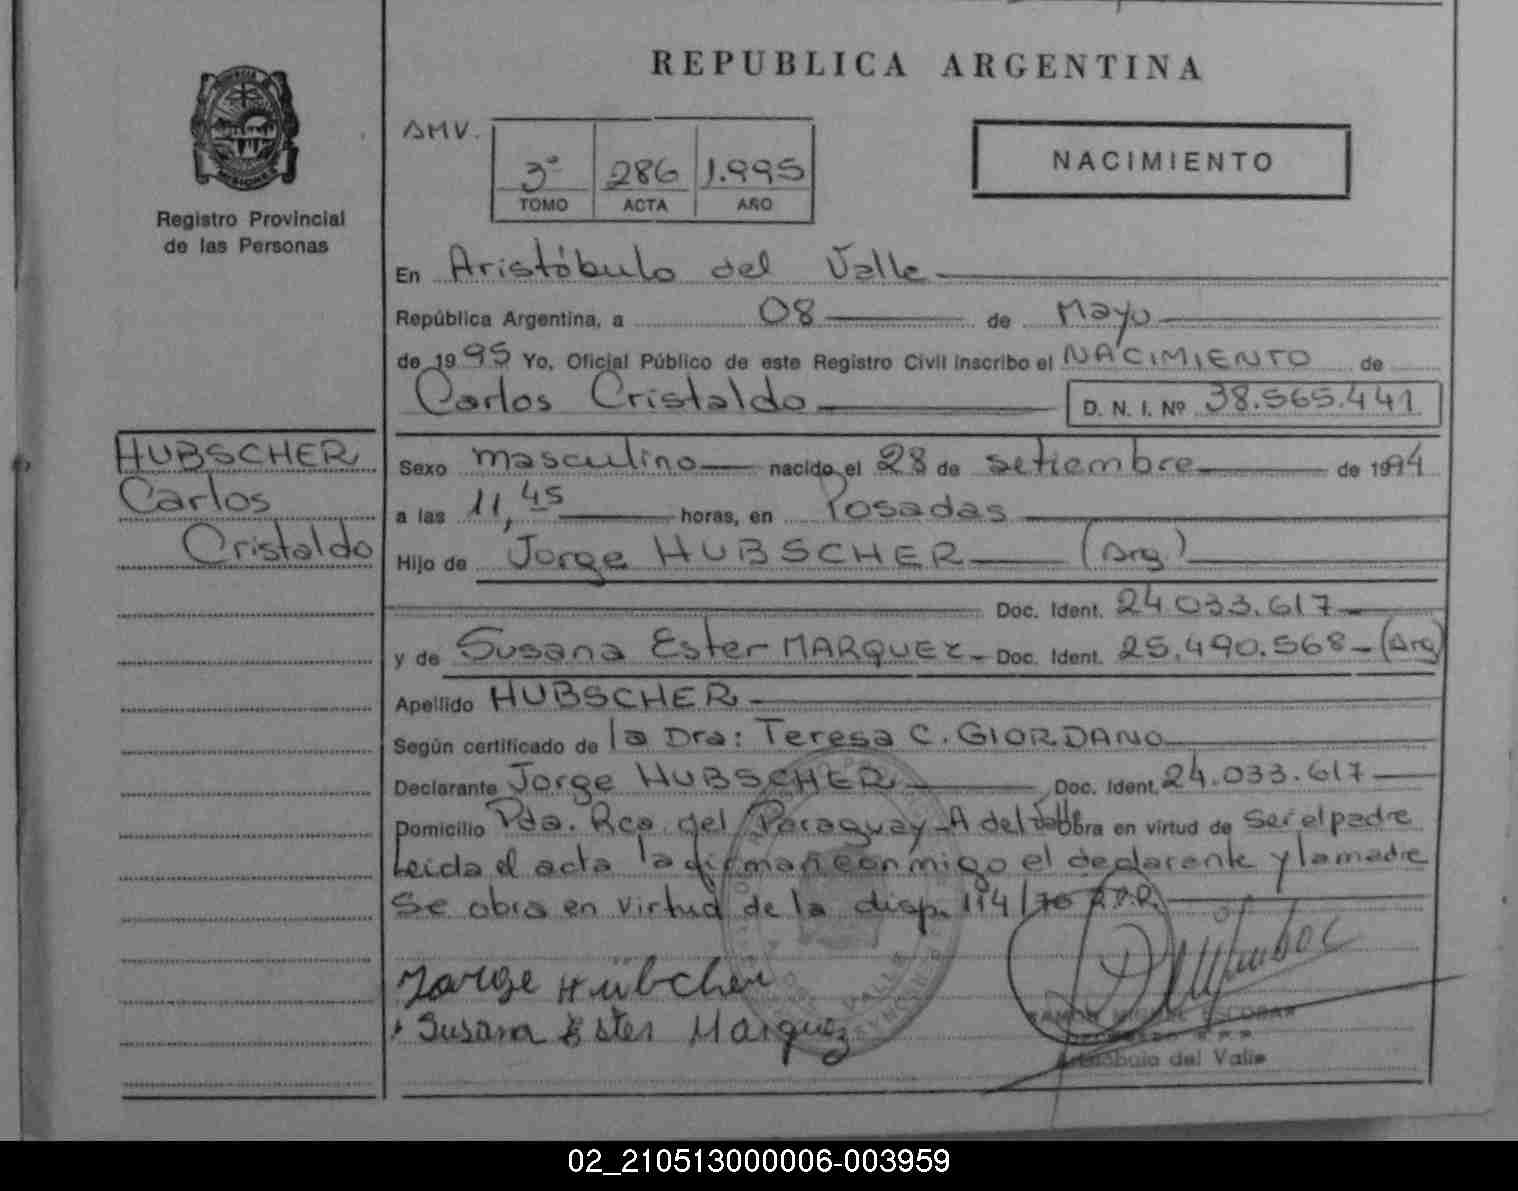 REPUBLICA ARGENTINA
MISIONES
Registro Provincial
de las Personas
AMV.
3º 286 1.995
TOMO ACTA AÑO
NACIMIENTO
En Aristóbulo del Valle
República Argentina, a 08 de Mayo
de 1995 Yo, Oficial Público de este Registro Civil inscribo el NACIMIENTO de
Carlos Cristaldo D. N. I. Nº 38.565.441
HUBSCHER
Carlos
Cristaldo
Sexo masculino nacido el 28 de setiembre de 1994
a las 11,45 horas, en Posadas
Hijo de Jorge HUBSCHER (Arg)
Doc. Ident. 24.033.617
y de Susana Ester MARQUEZ - Doc. Ident. 25.490.568 - (Arg)
Apellido HUBSCHER
Según certificado de la Dra: Teresa C. GIORDANO
Declarante Jorge HUBSCHER Doc. Ident. 24.033.617
Domicilio Pda. Rca del Paraguay - A del Valle Obra en virtud de ser el padre
Leida el acta la firman conmigo el declarante y la madre
Se obra en virtud de la disp. 114/76 R.P.P.
Jorge Hübcher
Susana Ester Marquez
RAMON MIGUEL ESCOBAR
Aristóbulo del Valle
02_210513000006-003959